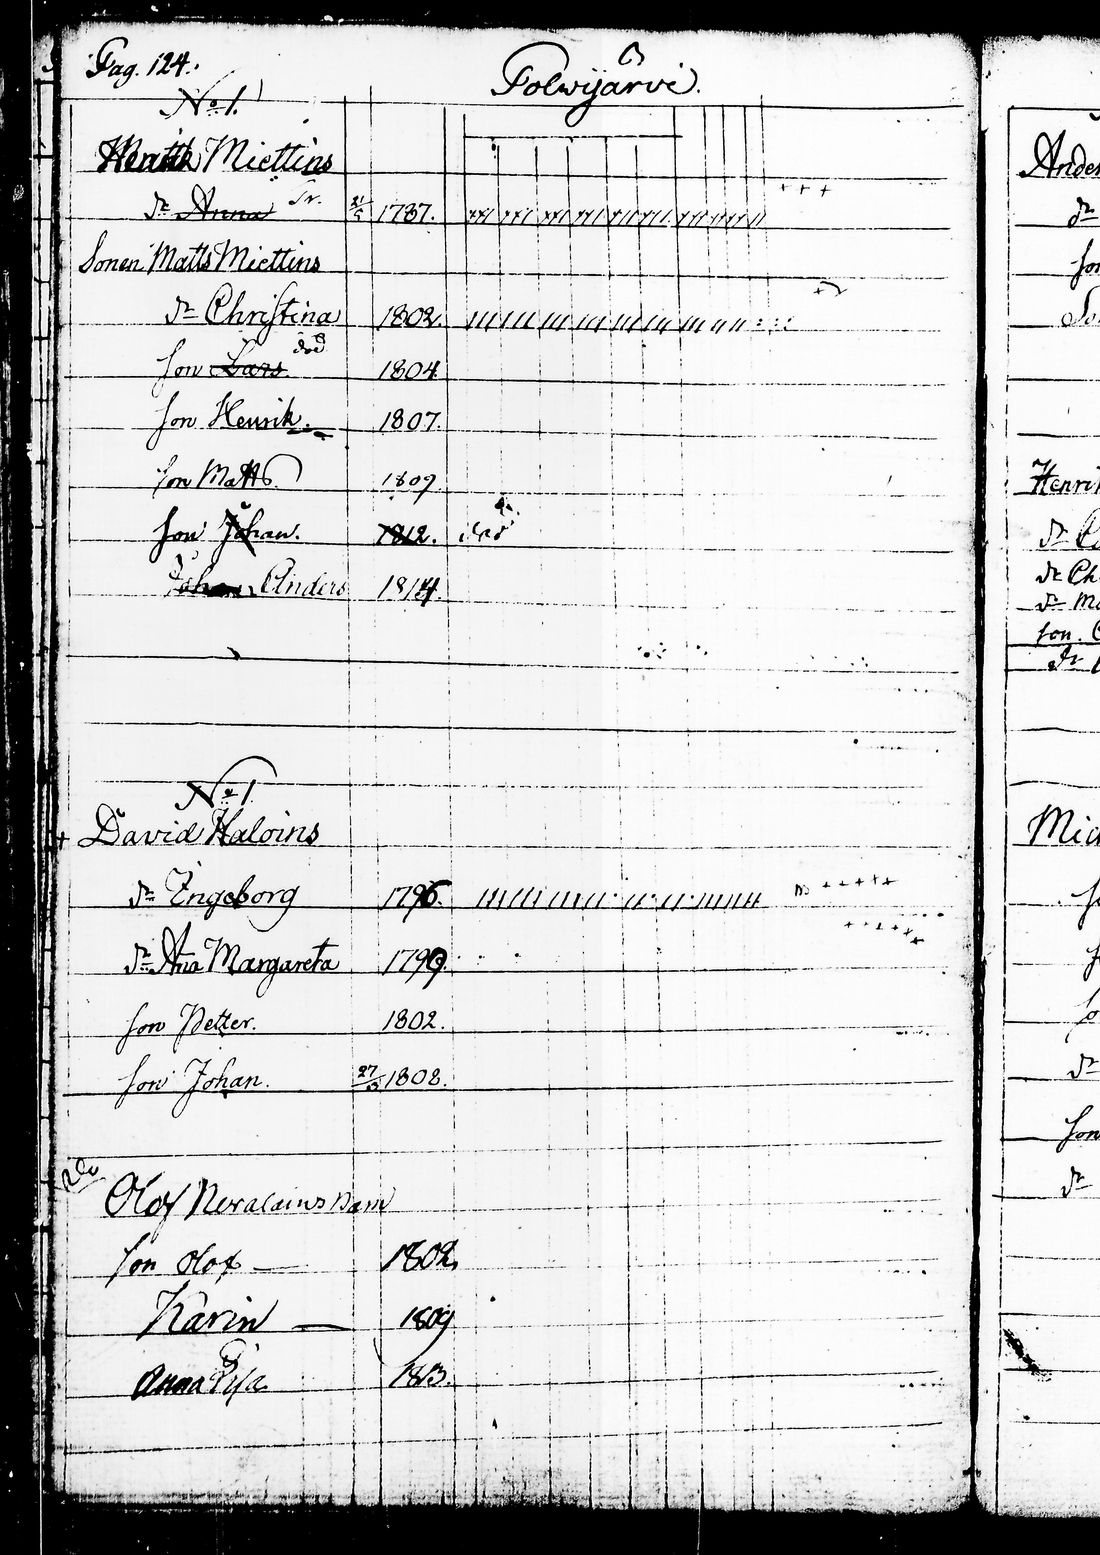 Pag. 124.
Polwijärvi.
No 1.
Miettins
dr Anna 21/5 1787.
Sonen Matts Miettins
dr Christina 1802.
son Lars. död 1804.
son Henrik. 1807.
son Matts. 1809
son Johan. 1812. död
Johan Anders 1814.
No 1
David Haloins
dr Engeborg 1796.
dr Ana Margareta 1799.
son Petter. 1802.
son Johan. 27/3 1808.
Olof Nevalains
son Olof 1802.
Karin 1809
Anna Lisa 1813.
Ander
dr
son
Henrik
dr
dr Ch
dr Ma
son.
dr
Mic
dr
son
dr